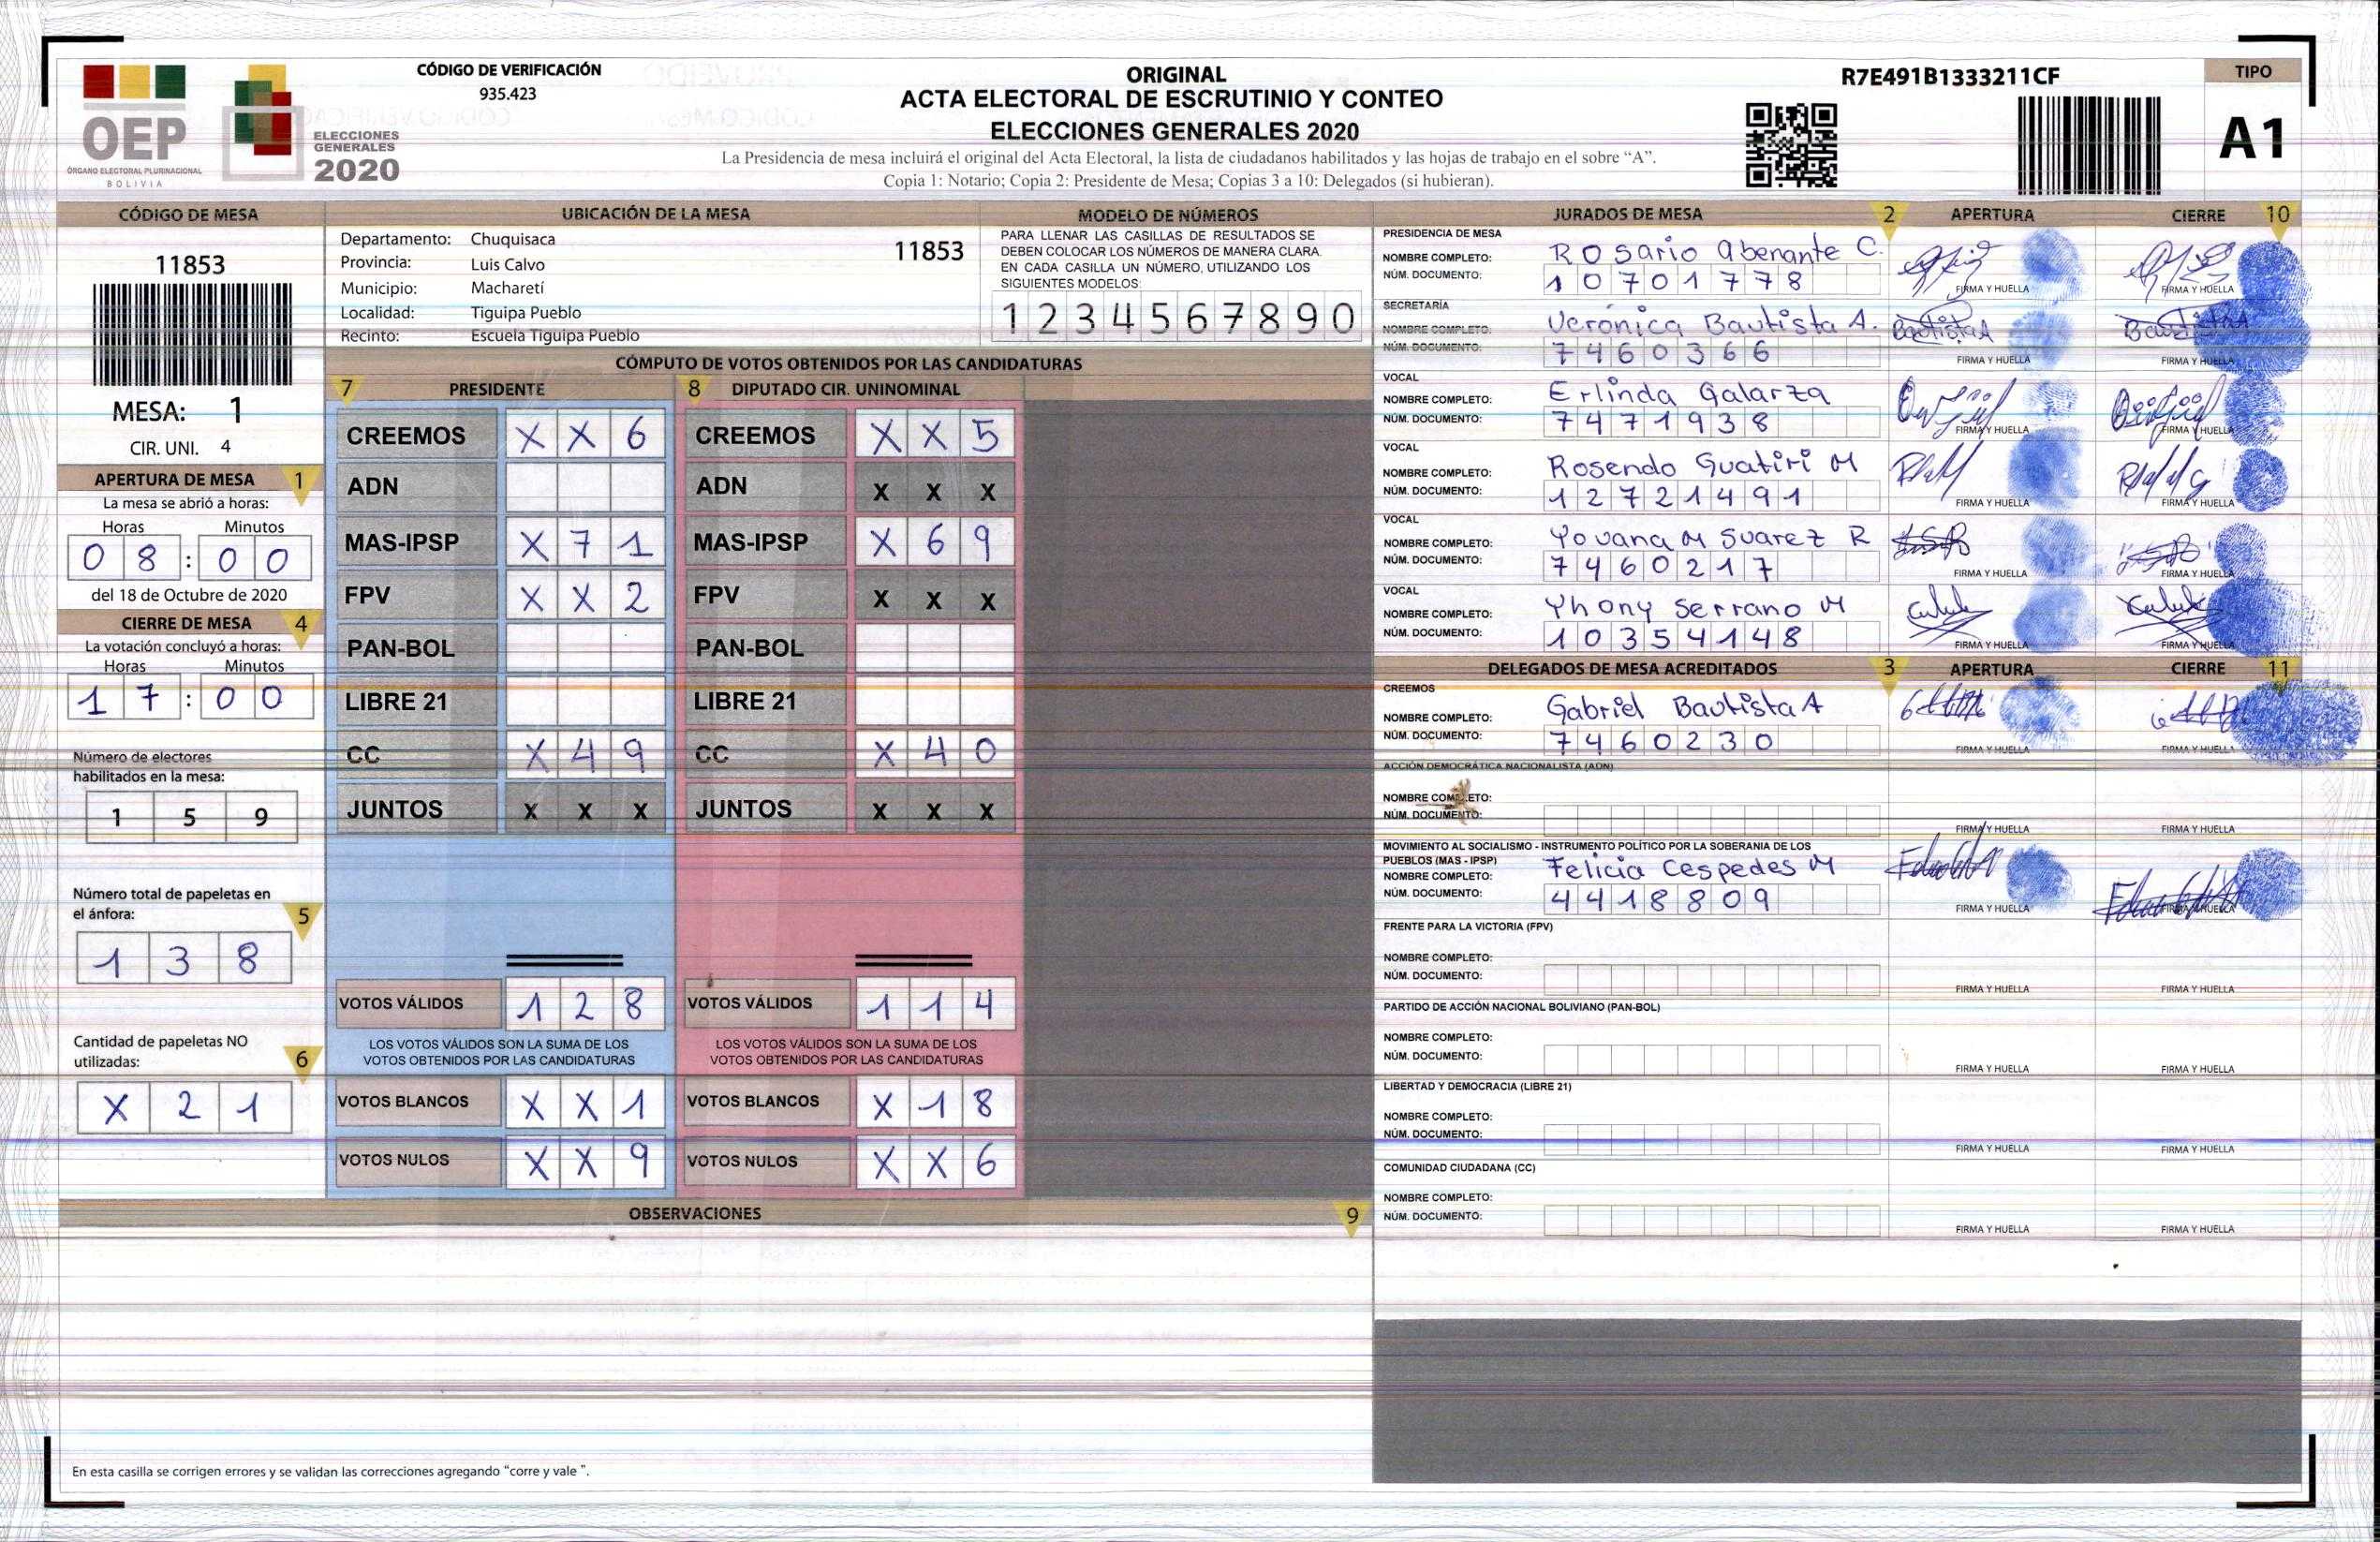 OEP
ÓRGANO ELECTORAL PLURINACIONAL
BOLIVIA
ELECCIONES
GENERALES
2020
CÓDIGO DE VERIFICACIÓN
935.423
ORIGINAL
ACTA ELECTORAL DE ESCRUTINIO Y CONTEO
ELECCIONES GENERALES 2020
La Presidencia de mesa incluirá el original del Acta Electoral, la lista de ciudadanos habilitados y las hojas de trabajo en el sobre “A”.
Copia 1: Notario; Copia 2: Presidente de Mesa; Copias 3 a 10: Delegados (si hubieran).
R7E491B1333211CF
TIPO
A1
CÓDIGO DE MESA
11853
MESA: 1
CIR. UNI. 4
APERTURA DE MESA 1
La mesa se abrió a horas:
Horas Minutos
0 8 : 0 0
del 18 de Octubre de 2020
CIERRE DE MESA 4
La votación concluyó a horas:
Horas Minutos
1 7 : 0 0
Número de electores
habilitados en la mesa:
1 5 9
Número total de papeletas en
el ánfora: 5
1 3 8
Cantidad de papeletas NO
utilizadas: 6
X 2 1
UBICACIÓN DE LA MESA
Departamento: Chuquisaca 11853
Provincia: Luis Calvo
Municipio: Macharetí
Localidad: Tiguipa Pueblo
Recinto: Escuela Tiguipa Pueblo
MODELO DE NÚMEROS
PARA LLENAR LAS CASILLAS DE RESULTADOS SE
DEBEN COLOCAR LOS NÚMEROS DE MANERA CLARA.
EN CADA CASILLA UN NÚMERO, UTILIZANDO LOS
SIGUIENTES MODELOS:
1 2 3 4 5 6 7 8 9 0
CÓMPUTO DE VOTOS OBTENIDOS POR LAS CANDIDATURAS
7 PRESIDENTE 8 DIPUTADO CIR. UNINOMINAL
CREEMOS X X 6 CREEMOS X X 5
ADN ADN X X X
MAS-IPSP X 7 1 MAS-IPSP X 6 9
FPV X X 2 FPV X X X
PAN-BOL PAN-BOL
LIBRE 21 LIBRE 21
CC X 4 9 CC X 4 0
JUNTOS X X X JUNTOS X X X
VOTOS VÁLIDOS 1 2 8 VOTOS VÁLIDOS 1 1 4
LOS VOTOS VÁLIDOS SON LA SUMA DE LOS LOS VOTOS VÁLIDOS SON LA SUMA DE LOS
VOTOS OBTENIDOS POR LAS CANDIDATURAS VOTOS OBTENIDOS POR LAS CANDIDATURAS
VOTOS BLANCOS X X 1 VOTOS BLANCOS X 1 8
VOTOS NULOS X X 9 VOTOS NULOS X X 6
OBSERVACIONES 9
En esta casilla se corrigen errores y se validan las correcciones agregando “corre y vale ”.
JURADOS DE MESA 2 APERTURA CIERRE 10
PRESIDENCIA DE MESA
NOMBRE COMPLETO: Rosario Abenante C.
NÚM. DOCUMENTO: 10701778 FIRMA Y HUELLA FIRMA Y HUELLA
SECRETARÍA
NOMBRE COMPLETO: Veronica Bautista A.
NÚM. DOCUMENTO: 7460366 FIRMA Y HUELLA FIRMA Y HUELLA
VOCAL
NOMBRE COMPLETO: Erlinda Galarza
NÚM. DOCUMENTO: 7471938 FIRMA Y HUELLA FIRMA Y HUELLA
VOCAL
NOMBRE COMPLETO: Rosendo Guatiri M
NÚM. DOCUMENTO: 12721491 FIRMA Y HUELLA FIRMA Y HUELLA
VOCAL
NOMBRE COMPLETO: Yovana M Suarez R
NÚM. DOCUMENTO: 7460217 FIRMA Y HUELLA FIRMA Y HUELLA
VOCAL
NOMBRE COMPLETO: Yhony Serrano M
NÚM. DOCUMENTO: 10354148 FIRMA Y HUELLA FIRMA Y HUELLA
DELEGADOS DE MESA ACREDITADOS 3 APERTURA CIERRE 11
CREEMOS
NOMBRE COMPLETO: Gabriel Bautista A
NÚM. DOCUMENTO: 7460230 FIRMA Y HUELLA FIRMA Y HUELLA
ACCIÓN DEMOCRÁTICA NACIONALISTA (ADN)
NOMBRE COMPLETO:
NÚM. DOCUMENTO: FIRMA Y HUELLA FIRMA Y HUELLA
MOVIMIENTO AL SOCIALISMO - INSTRUMENTO POLÍTICO POR LA SOBERANIA DE LOS
PUEBLOS (MAS - IPSP)
NOMBRE COMPLETO: Felicia Cespedes M
NÚM. DOCUMENTO: 4418809 FIRMA Y HUELLA FIRMA Y HUELLA
FRENTE PARA LA VICTORIA (FPV)
NOMBRE COMPLETO:
NÚM. DOCUMENTO: FIRMA Y HUELLA FIRMA Y HUELLA
PARTIDO DE ACCIÓN NACIONAL BOLIVIANO (PAN-BOL)
NOMBRE COMPLETO:
NÚM. DOCUMENTO: FIRMA Y HUELLA FIRMA Y HUELLA
LIBERTAD Y DEMOCRACIA (LIBRE 21)
NOMBRE COMPLETO:
NÚM. DOCUMENTO: FIRMA Y HUELLA FIRMA Y HUELLA
COMUNIDAD CIUDADANA (CC)
NOMBRE COMPLETO:
NÚM. DOCUMENTO: FIRMA Y HUELLA FIRMA Y HUELLA